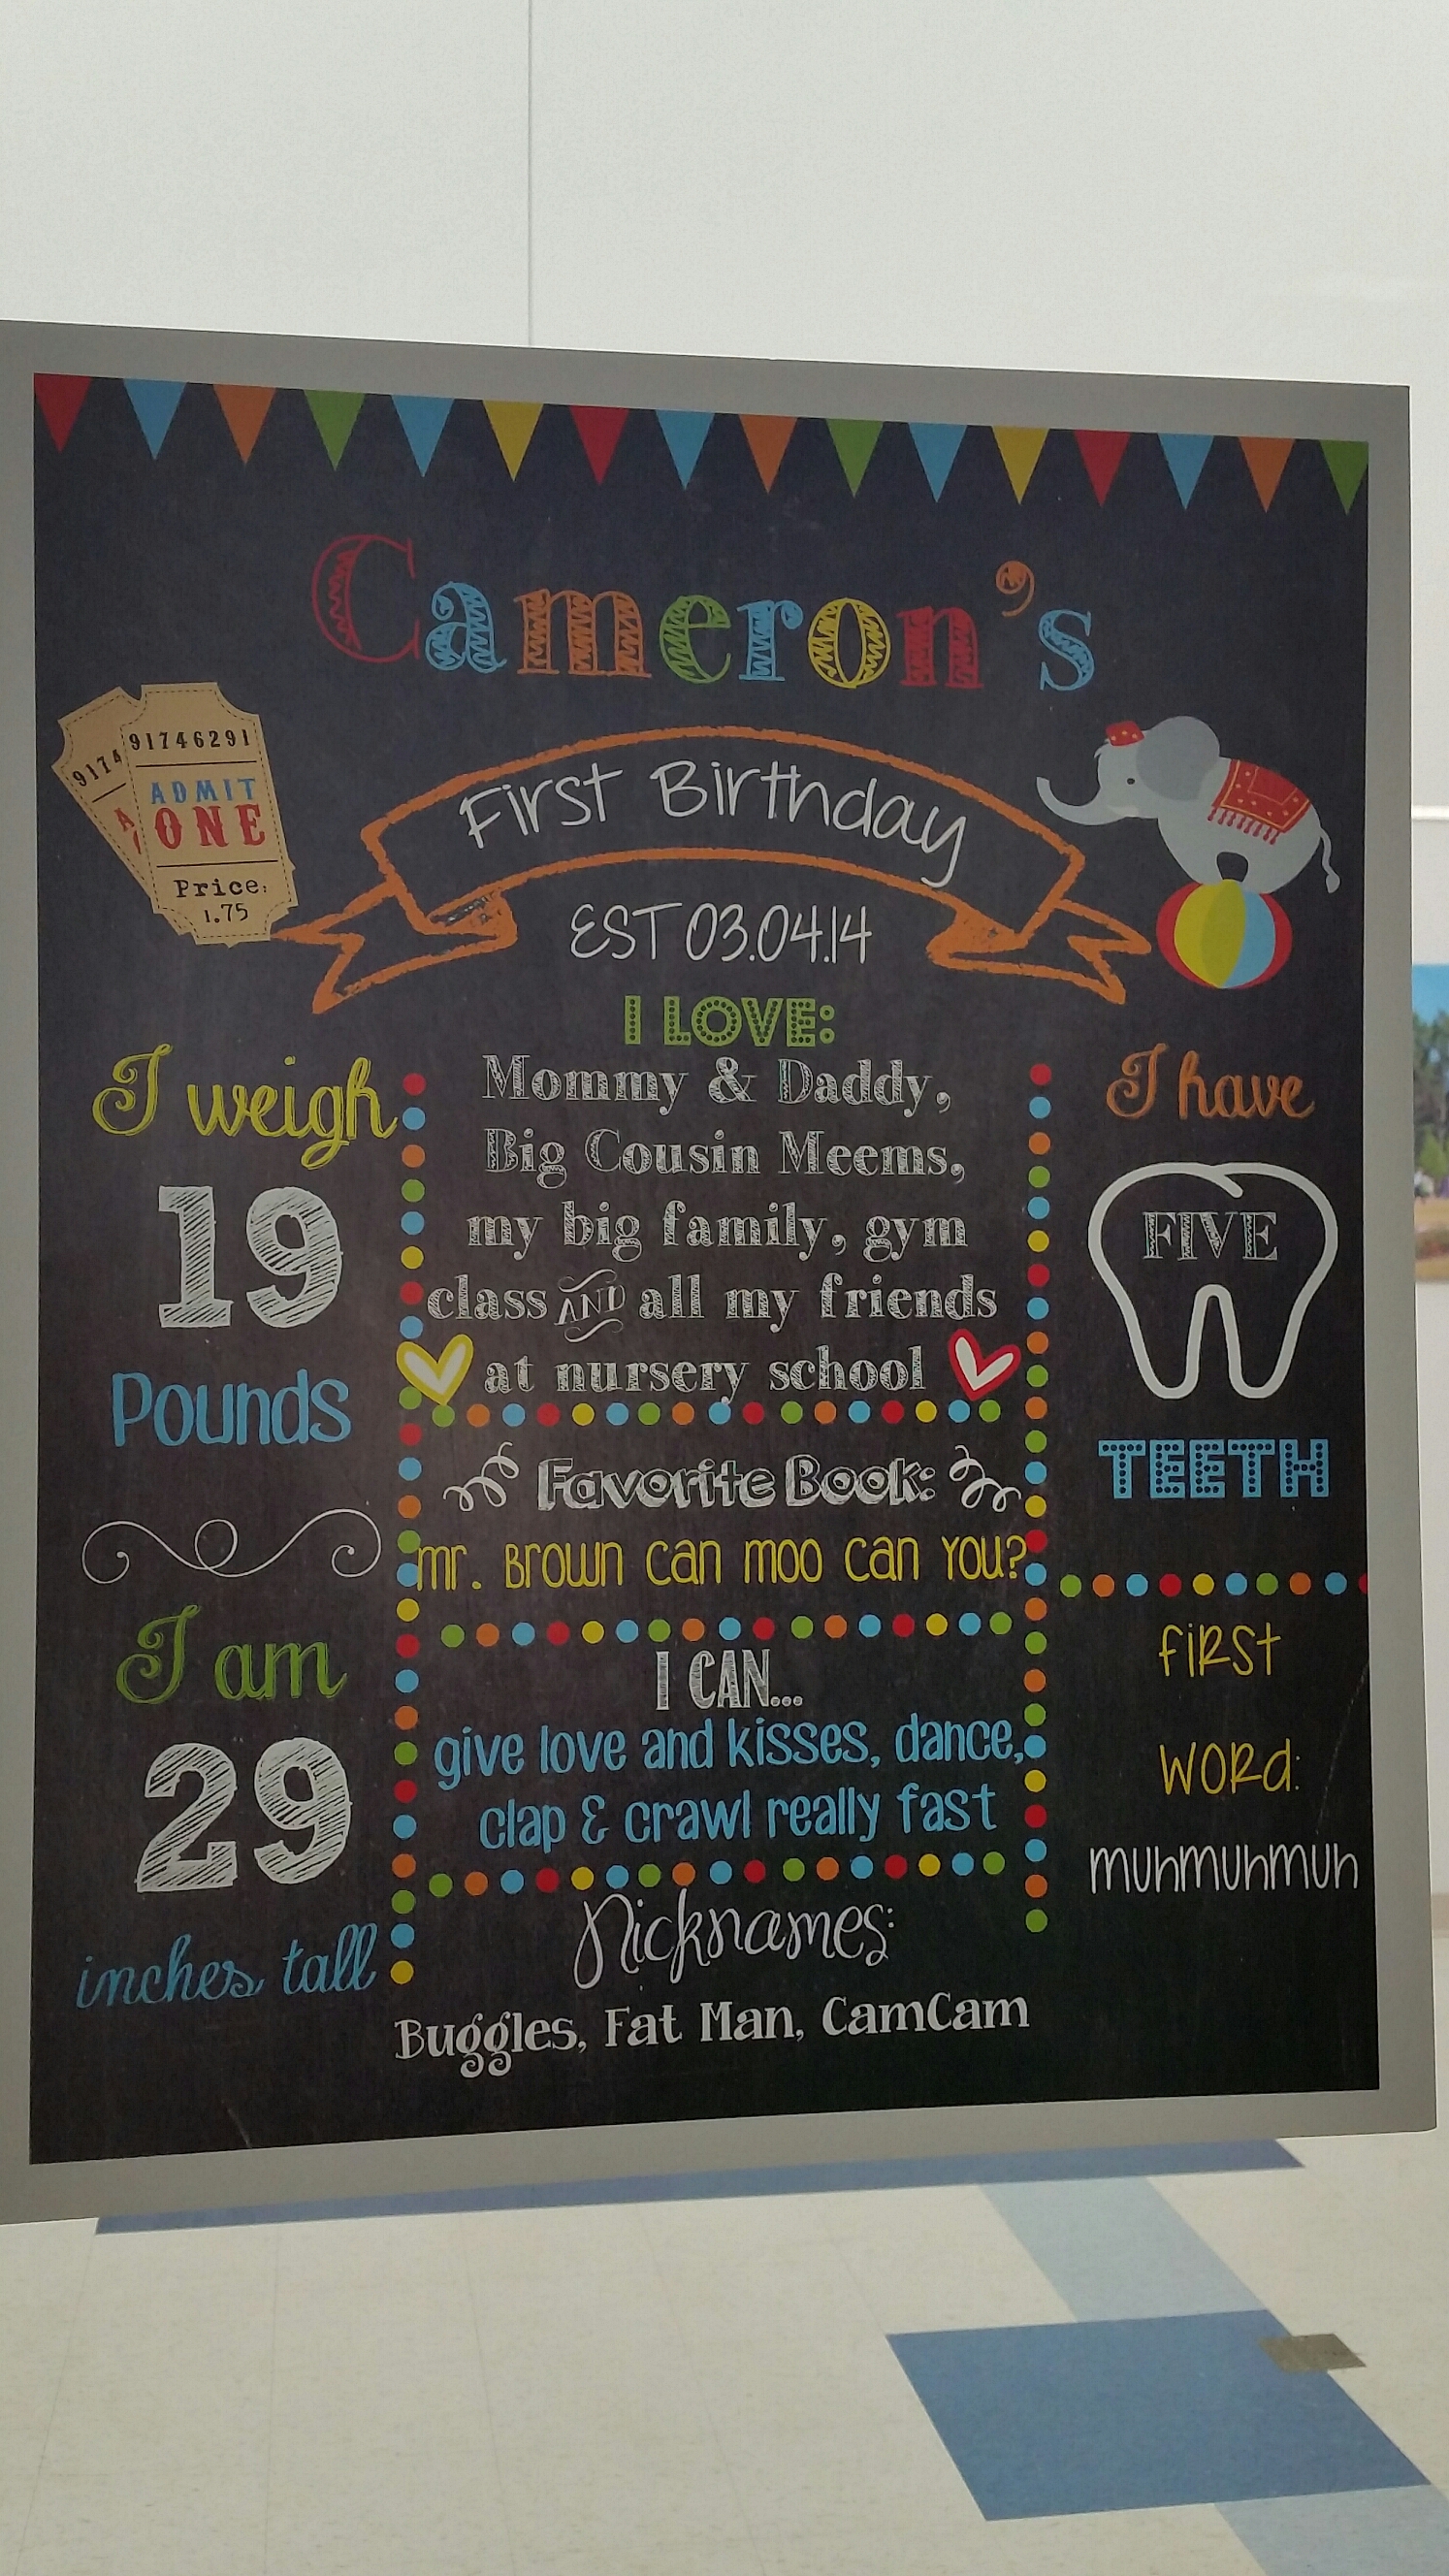 Cameron's
9174
A
91746291
ADMIT
ONE
Price:
1.75
First Birthday
EST 03.04.14
I weigh
19
Pounds
I am
29
inches tall
I LOVE:
Mommy & Daddy,
Big Cousin Meems,
my big family, gym
class AND all my friends
at nursery school
Favorite Book:
mr. Brown can moo can you?
I CAN...
give love and kisses, dance,
clap & crawl really fast
Nicknames:
Buggles, Fat Man, CamCam
I have
FIVE
TEETH
first
word:
muhmuhmuh